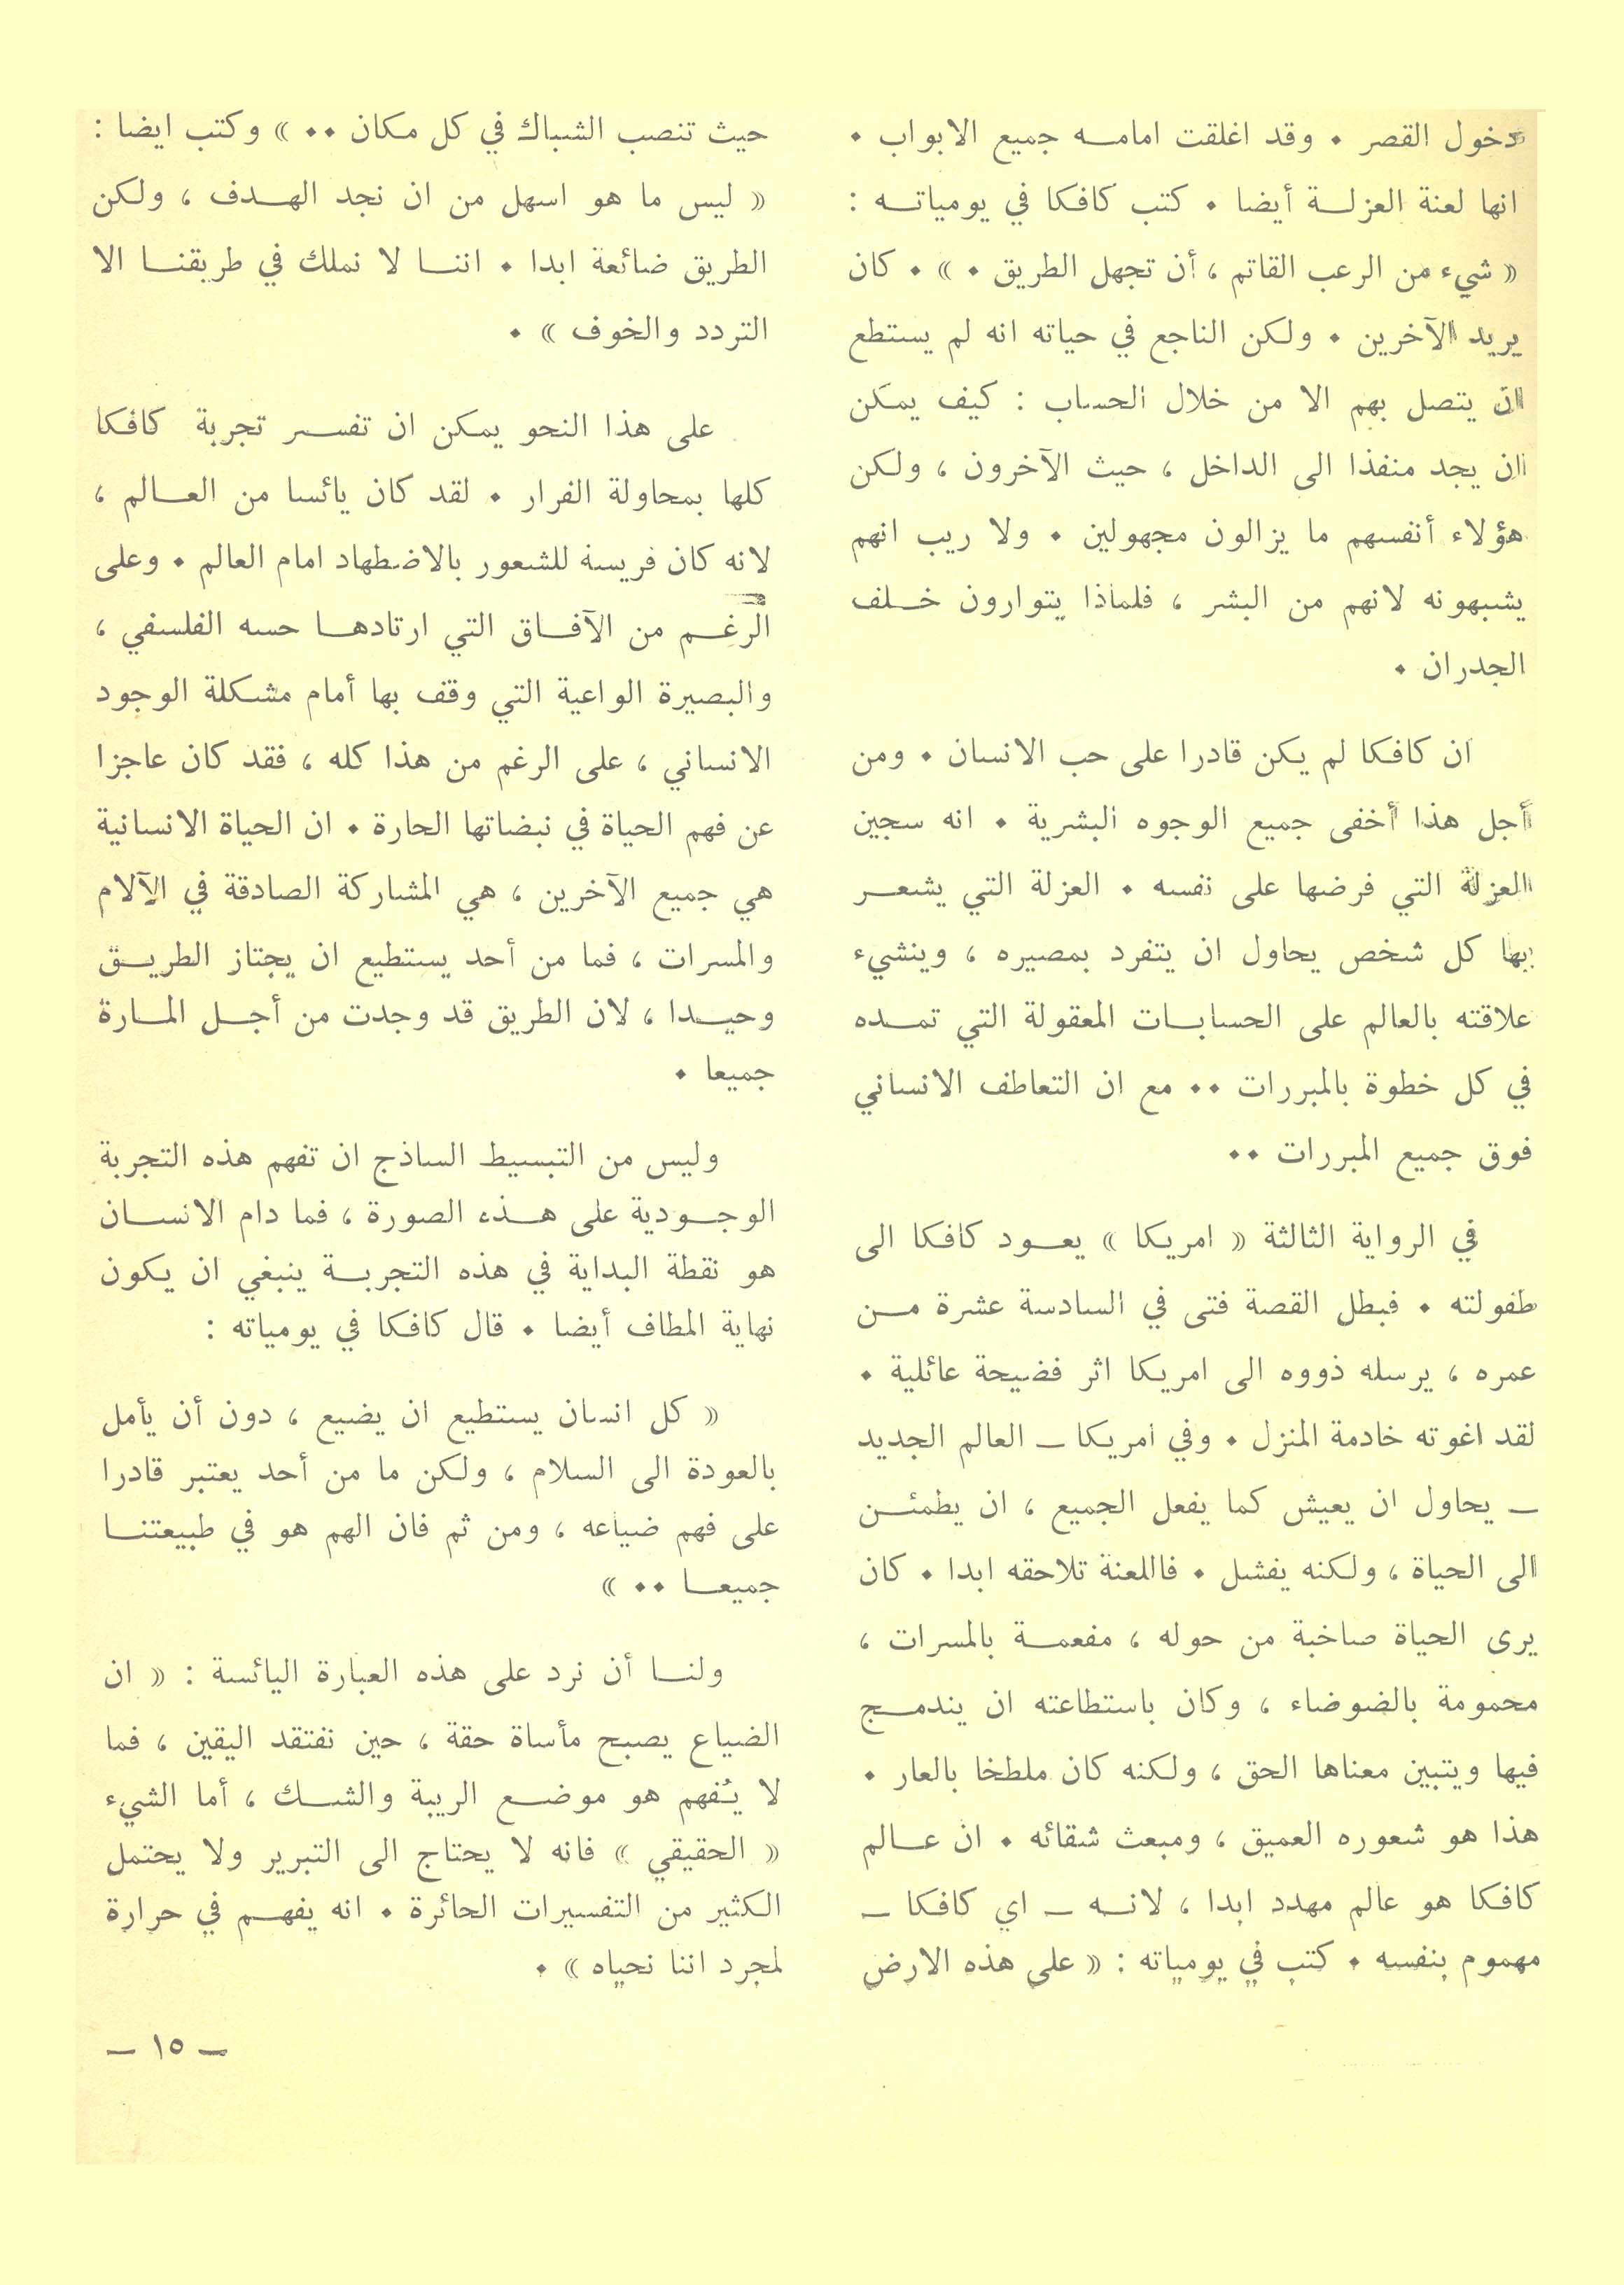 دخول القصر . وقد اغلقت امامه جميع الابواب .
انها لعنة العزلة أيضا . كتب كافكا في يومياته :
« شيء من الرعب القاتم ، أن تجهل الطريق . » . كان
يريد الآخرين . ولكن الناجع في حياته انه لم يستطع
ان يتصل بهم الا من خلال الحساب : كيف يمكن
ان يجد منفذا الى الداخل ، حيث الآخرون ، ولكن
هؤلاء أنفسهم ما يزالون مجهولين . ولا ريب انهم
يشبهونه لانهم من البشر ، فلماذا يتوارون خلف
الجدران .
ان كافكا لم يكن قادرا على حب الانسان . ومن
أجل هذا أخفى جميع الوجوه البشرية . انه سجين
العزلة التي فرضها على نفسه . العزلة التي يشعر
بها كل شخص يحاول ان يتفرد بمصيره ، وينشيء
علاقته بالعالم على الحسابات المعقولة التي تمده
في كل خطوة بالمبررات .. مع ان التعاطف الانساني
فوق جميع المبررات ..
في الرواية الثالثة « امريكا » يعود كافكا الى
طفولته . فبطل القصة فتى في السادسة عشرة من
عمره ، يرسله ذووه الى امريكا اثر فضيحة عائلية .
لقد اغوته خادمة المنزل . وفي امريكا ـ العالم الجديد
ـ يحاول ان يعيش كما يفعل الجميع ، ان يطمئن
الى الحياة ، ولكنه يفشل . فاللعنة تلاحقه ابدا . كان
يرى الحياة صاخبة من حوله ، مفعمة بالمسرات ،
محمومة بالضوضاء ، وكان باستطاعته ان يندمج
فيها ويتبين معناها الحق ، ولكنه كان ملطخا بالعار .
هذا هو شعوره العميق ، ومبعث شقائه . ان عالم
كافكا هو عالم مهدد ابدا ، لانه ـ اي كافكا ـ
مهموم بنفسه . كتب في يومياته : « على هذه الارض
حيث تنصب الشباك في كل مكان .. » وكتب ايضا :
« ليس ما هو اسهل من ان نجد الهدف ، ولكن
الطريق ضائعة ابدا . اننا لا نملك في طريقنا الا
التردد والخوف » .
على هذا النحو يمكن ان تفسر تجربة كافكا
كلها بمحاولة الفرار . لقد كان يائسا من العالم ،
لانه كان فريسة للشعور بالاضطهاد امام العالم . وعلى
الرغم من الآفاق التي ارتادها حسه الفلسفي ،
والبصيرة الواعية التي وقف بها أمام مشكلة الوجود
الانساني ، على الرغم من هذا كله ، فقد كان عاجزا
عن فهم الحياة في نبضاتها الحارة . ان الحياة الانسانية
هي جميع الآخرين ، هي المشاركة الصادقة في الآلام
والمسرات ، فما من أحد يستطيع ان يجتاز الطريق
وحيدا ، لان الطريق قد وجدت من أجل المارة
جميعا .
وليس من التبسيط الساذج ان تفهم هذه التجربة
الوجودية على هذه الصورة ، فما دام الانسان
هو نقطة البداية في هذه التجربة ينبغي ان يكون
نهاية المطاف أيضا . قال كافكا في يومياته :
« كل انسان يستطيع ان يضيع ، دون أن يأمل
بالعودة الى السلام ، ولكن ما من أحد يعتبر قادرا
على فهم ضياعه ، ومن ثم فان الهم هو في طبيعتنا
جميعا .. »
ولنا أن نرد على هذه العبارة اليائسة : « ان
الضياع يصبح مأساة حقة ، حين نفتقد اليقين ، فما
لا يُفهم هو موضع الريبة والشك ، أما الشيء
« الحقيقي » فانه لا يحتاج الى التبرير ولا يحتمل
الكثير من التفسيرات الحائرة . انه يفهم في حرارة
لمجرد اننا نحياه » .
ـ ١٥ ـ